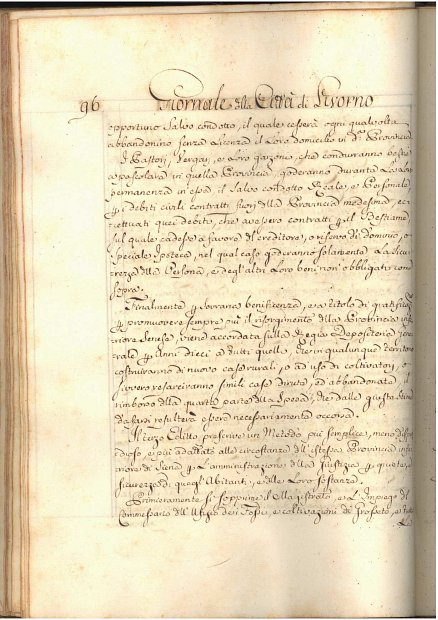 96 Giornale della Città di Livorno
opportuno Salvo condotto, il quale cesserà ogni qual volta
abbandonino senza Licenza il Loro domicilio in d.ª Provincia
I Pastori, Vergai, e Loro garzoni, che condurranno bestie
a pascolare in quella Provincia, goderanno durante la loro
permanenza in essa, il Salvo condotto Reale, e Personale
p. i debiti civili contratti fuori della Provincia medesima, ec-
cettuati quei debiti, che avessero contratti p. il Bestiame,
sul quale cadesse a favore del creditore, o riservo di dominio, o
speciale Ipoteca, nel qual caso goderanno solamente la sicu-
rezza della Persona, e degl'altri Loro beni non obbligati come
sopra.
Finalmente p. sovrana beneficenza, e a titolo di gratificaz.
p. promuovere sempre più il risorgimento della Provincia infe-
riore Senese, viene accordata sulla Regia Depositeria
p. Anni dieci a tutti quelli, che in qualunque territorio
costruiranno di nuovo case rurali, o ad uso di coltivatori, o
ovvero resarciranno simili case dirute, ed abbandonate, il
rimborso della quarta parte della spesa, che dalle giuste stime
da farsi resulterà essere necessariamente occorsa.
Il terzo Editto prescrive un Metodo più semplice, meno dispen-
dioso, e più adattato alle circostanze dell'istessa Provincia infe-
riore di Siena p. L'amministrazione della Giustizia p. quiete, e
sicurezza di quegl'Abitanti, e delle Loro sostanze.
Primieramente si sopprime il Magistrato, e L'Impiego del
Commessario dell'Ufizio dei Fossi, e coltivazioni di Grosseto, e tutte